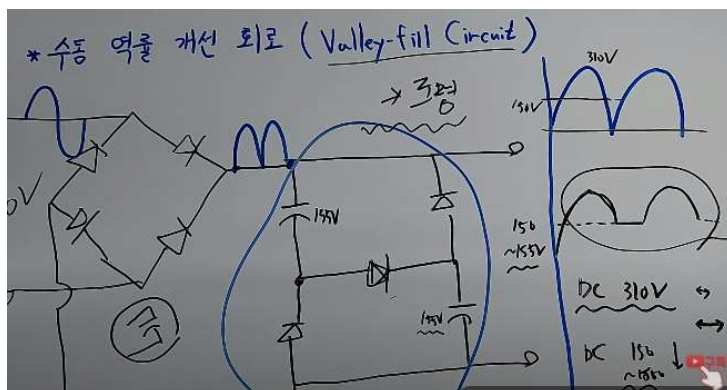 * 수동 역률 개선 회로 (Valley-fill Circuit)
310V
150V
155V
155V
150
~155V
DC 310V
DC 150